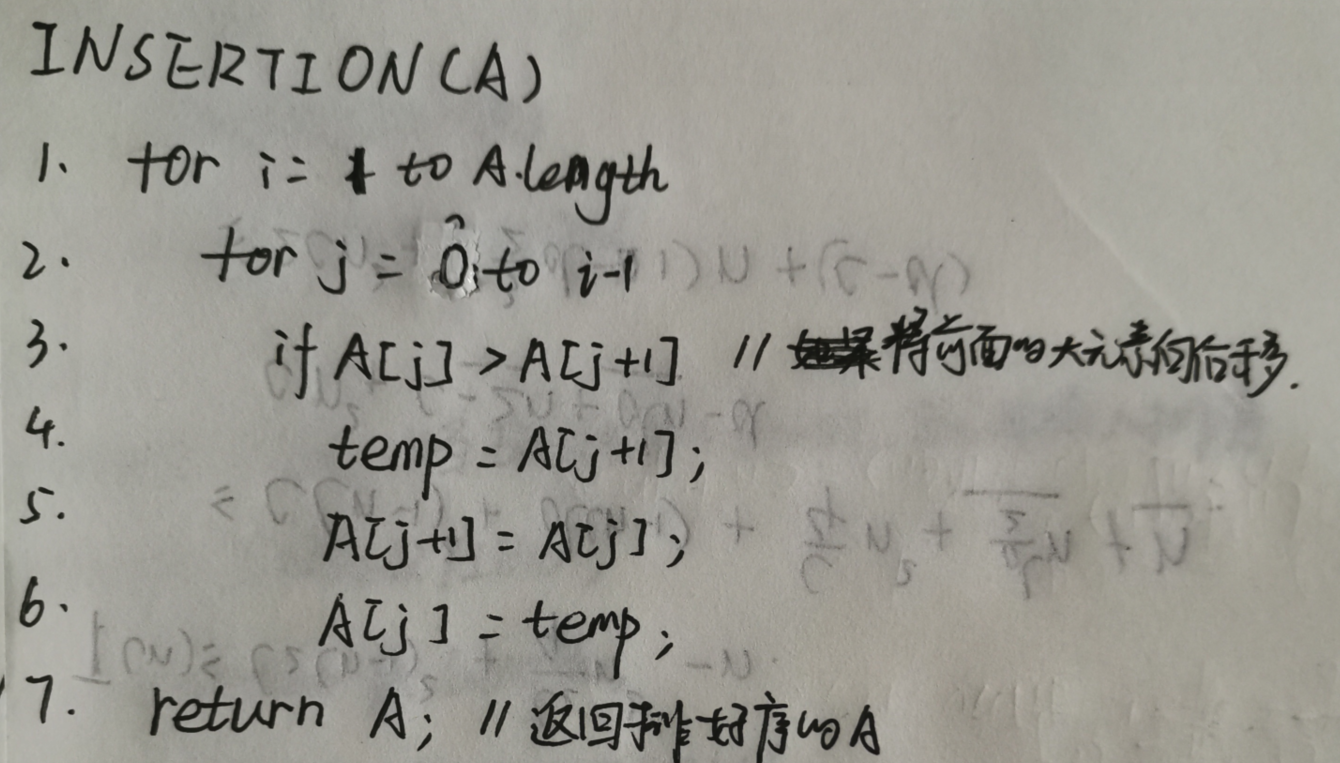 INSERTION(A)
1. for i = 1 to A.length
2. for j = 0 to i-1
3. if A[j] > A[j+1] // 将前面的大元素向后移.
4. temp = A[j+1];
5. A[j+1] = A[j];
6. A[j] = temp;
7. return A; // 返回排好序的A